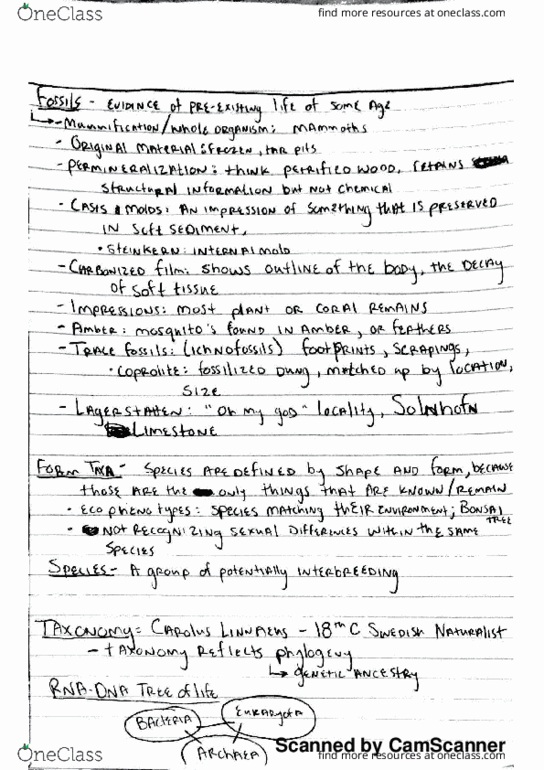 OneClass
find more resources at oneclass.com
FOSSILS - EVIDENCE of PRE-EXISTING life of SOME AGE
- Mummification/whole ORGANISM: MAMMOTHS
- ORIGINAL MATERIAL: FROZEN, TAR PITS
- PERMINERALIZATION: THINK PETRIFIED WOOD, RETAINS
STRUCTURAL INFORMATION but NOT CHEMICAL
- CASTS & MOLDS: AN IMPRESSION OF SOMETHING THAT IS PRESERVED
IN SOFT SEDIMENT,
• STEINKERN: INTERNAL MOLD
- CARBONIZED film: SHOWS OUTLINE OF THE BODY, THE DECAY
OF SOFT TISSUE
- IMPRESSIONS: MOST PLANT OR CORAL REMAINS
- AMBER: MOSQUITO'S FOUND IN AMBER, OR FEATHERS
- TRACE FOSSILS: (ICHNOFOSSILS) FOOTPRINTS, SCRAPINGS,
• COPROLITE: FOSSILIZED DUNG, MATCHED UP by LOCATION,
SIZE
- LAGERSTATTEN: "Oh my god" locality, SOLNHOFN
LIMESTONE
FORM TAXA - SPECIES ARE DEFINED by SHAPE AND FORM, BECAUSE
THOSE ARE THE only THINGS THAT ARE KNOWN/REMAIN
• ECOPHENOTYPES: SPECIES MATCHING THEIR ENVIRONMENT; BONSAI
TREE
• NOT RECOGNIZING SEXUAL DIFFERENCES WITHIN THE SAME
SPECIES
SPECIES - A GROUP of POTENTIALLY INTERBREEDING
TAXONOMY: CAROLUS LINNAEUS - 18th C SWEDISH NATURALIST
- TAXONOMY REFLECTS phylogeny
GENETIC ANCESTRY
RNA-DNA TREE of life
BACTERIA
EUKARYOTA
ARCHAEA
Scanned by CamScanner
OneClass
find more resources at oneclass.com